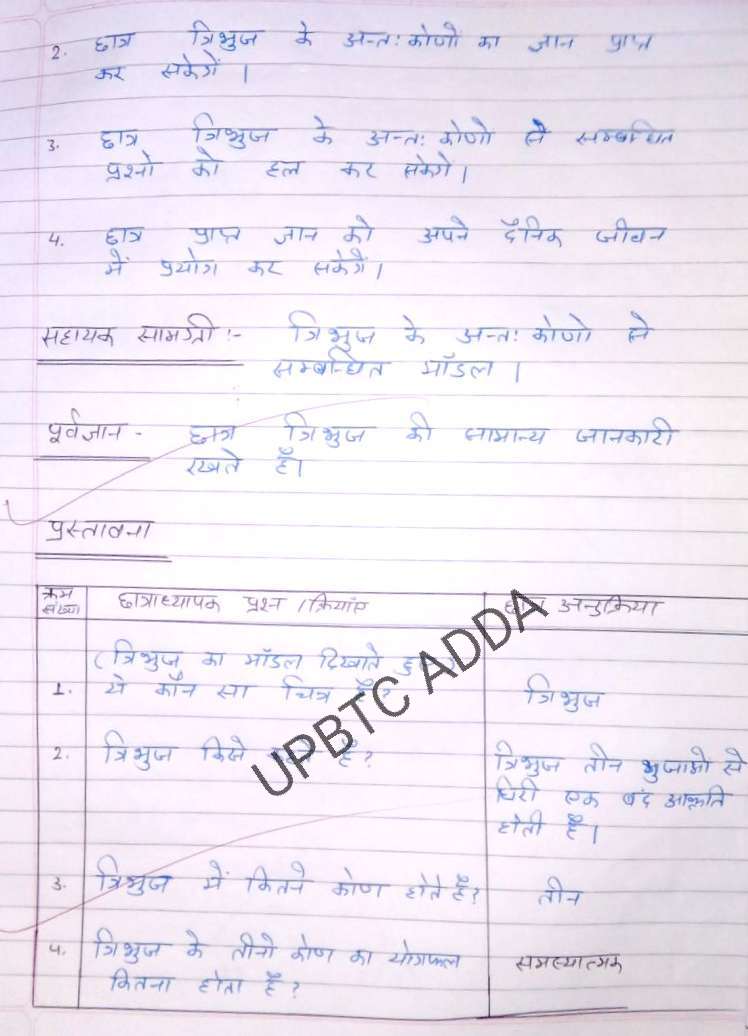 2. छात्र त्रिभुज के अन्तः कोणों का ज्ञान प्राप्त
कर सकेगें।
3. छात्र त्रिभुज के अन्तः कोणो से सम्बन्धित
प्रश्नो को हल कर सकेगे।
4. छात्र प्राप्त ज्ञान को अपने दैनिक जीवन
में प्रयोग कर सकेगें।
सहायक सामग्री :- त्रिभुज के अन्तः कोणो से
सम्बन्धित मॉडल।
पूर्वज्ञान - छात्र त्रिभुज की सामान्य जानकारी
रखते हैं।
प्रस्तावना
क्रम संख्या छात्राध्यापक प्रश्न / क्रियाएं छात्र अनुक्रिया
(त्रिभुज का मॉडल दिखाते हुए)
1. ये कौन सा चित्र है? त्रिभुज
2. त्रिभुज किसे कहते है? त्रिभुज तीन भुजाओ से
घिरी एक बंद आकृति
होती हैं।
3. त्रिभुज में कितने कोण होते हैं? तीन
4. त्रिभुज के तीनो कोण का योगफल समस्यात्मक
कितना होता है?
UPBTC ADDA